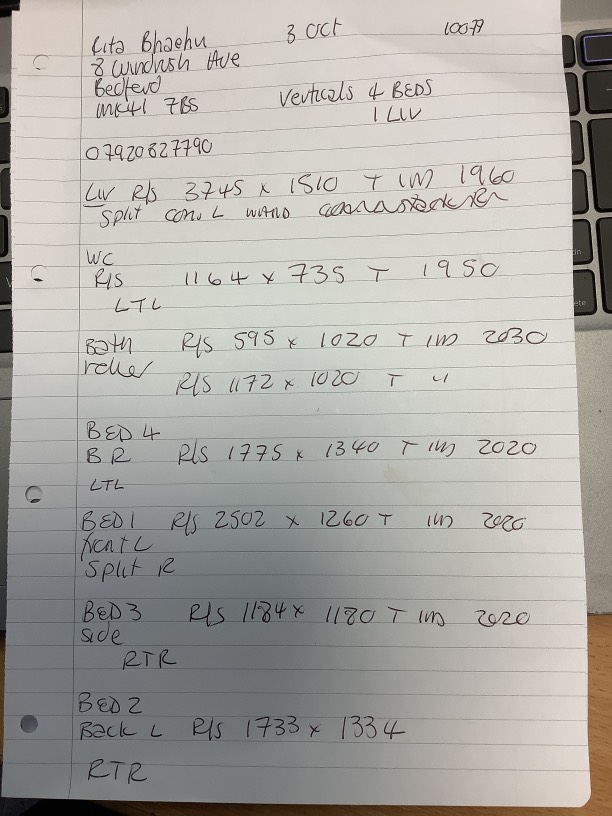 Rita Bhaehu 3 Oct 10079
8 Windrush Ave
Bedford
MK41 7BS Verticals 4 BEDS
1 LIV
07920827790
LIV R/S 3745 x 1510 T IM 1960
Split conv L WAND
WC
R/S 1164 x 735 T 1950
LTL
Bath R/S 595 x 1020 T IM 2030
roller
R/S 1172 x 1020 T "
BED 4
B R R/S 1775 x 1340 T IM 2020
LTL
BED1 R/S 2502 x 1260 T IM 2020
front L
Split R
BED 3 R/S 1184 x 1180 T IM 2020
side
RTR
BED 2
Back L R/S 1733 x 1334
RTR